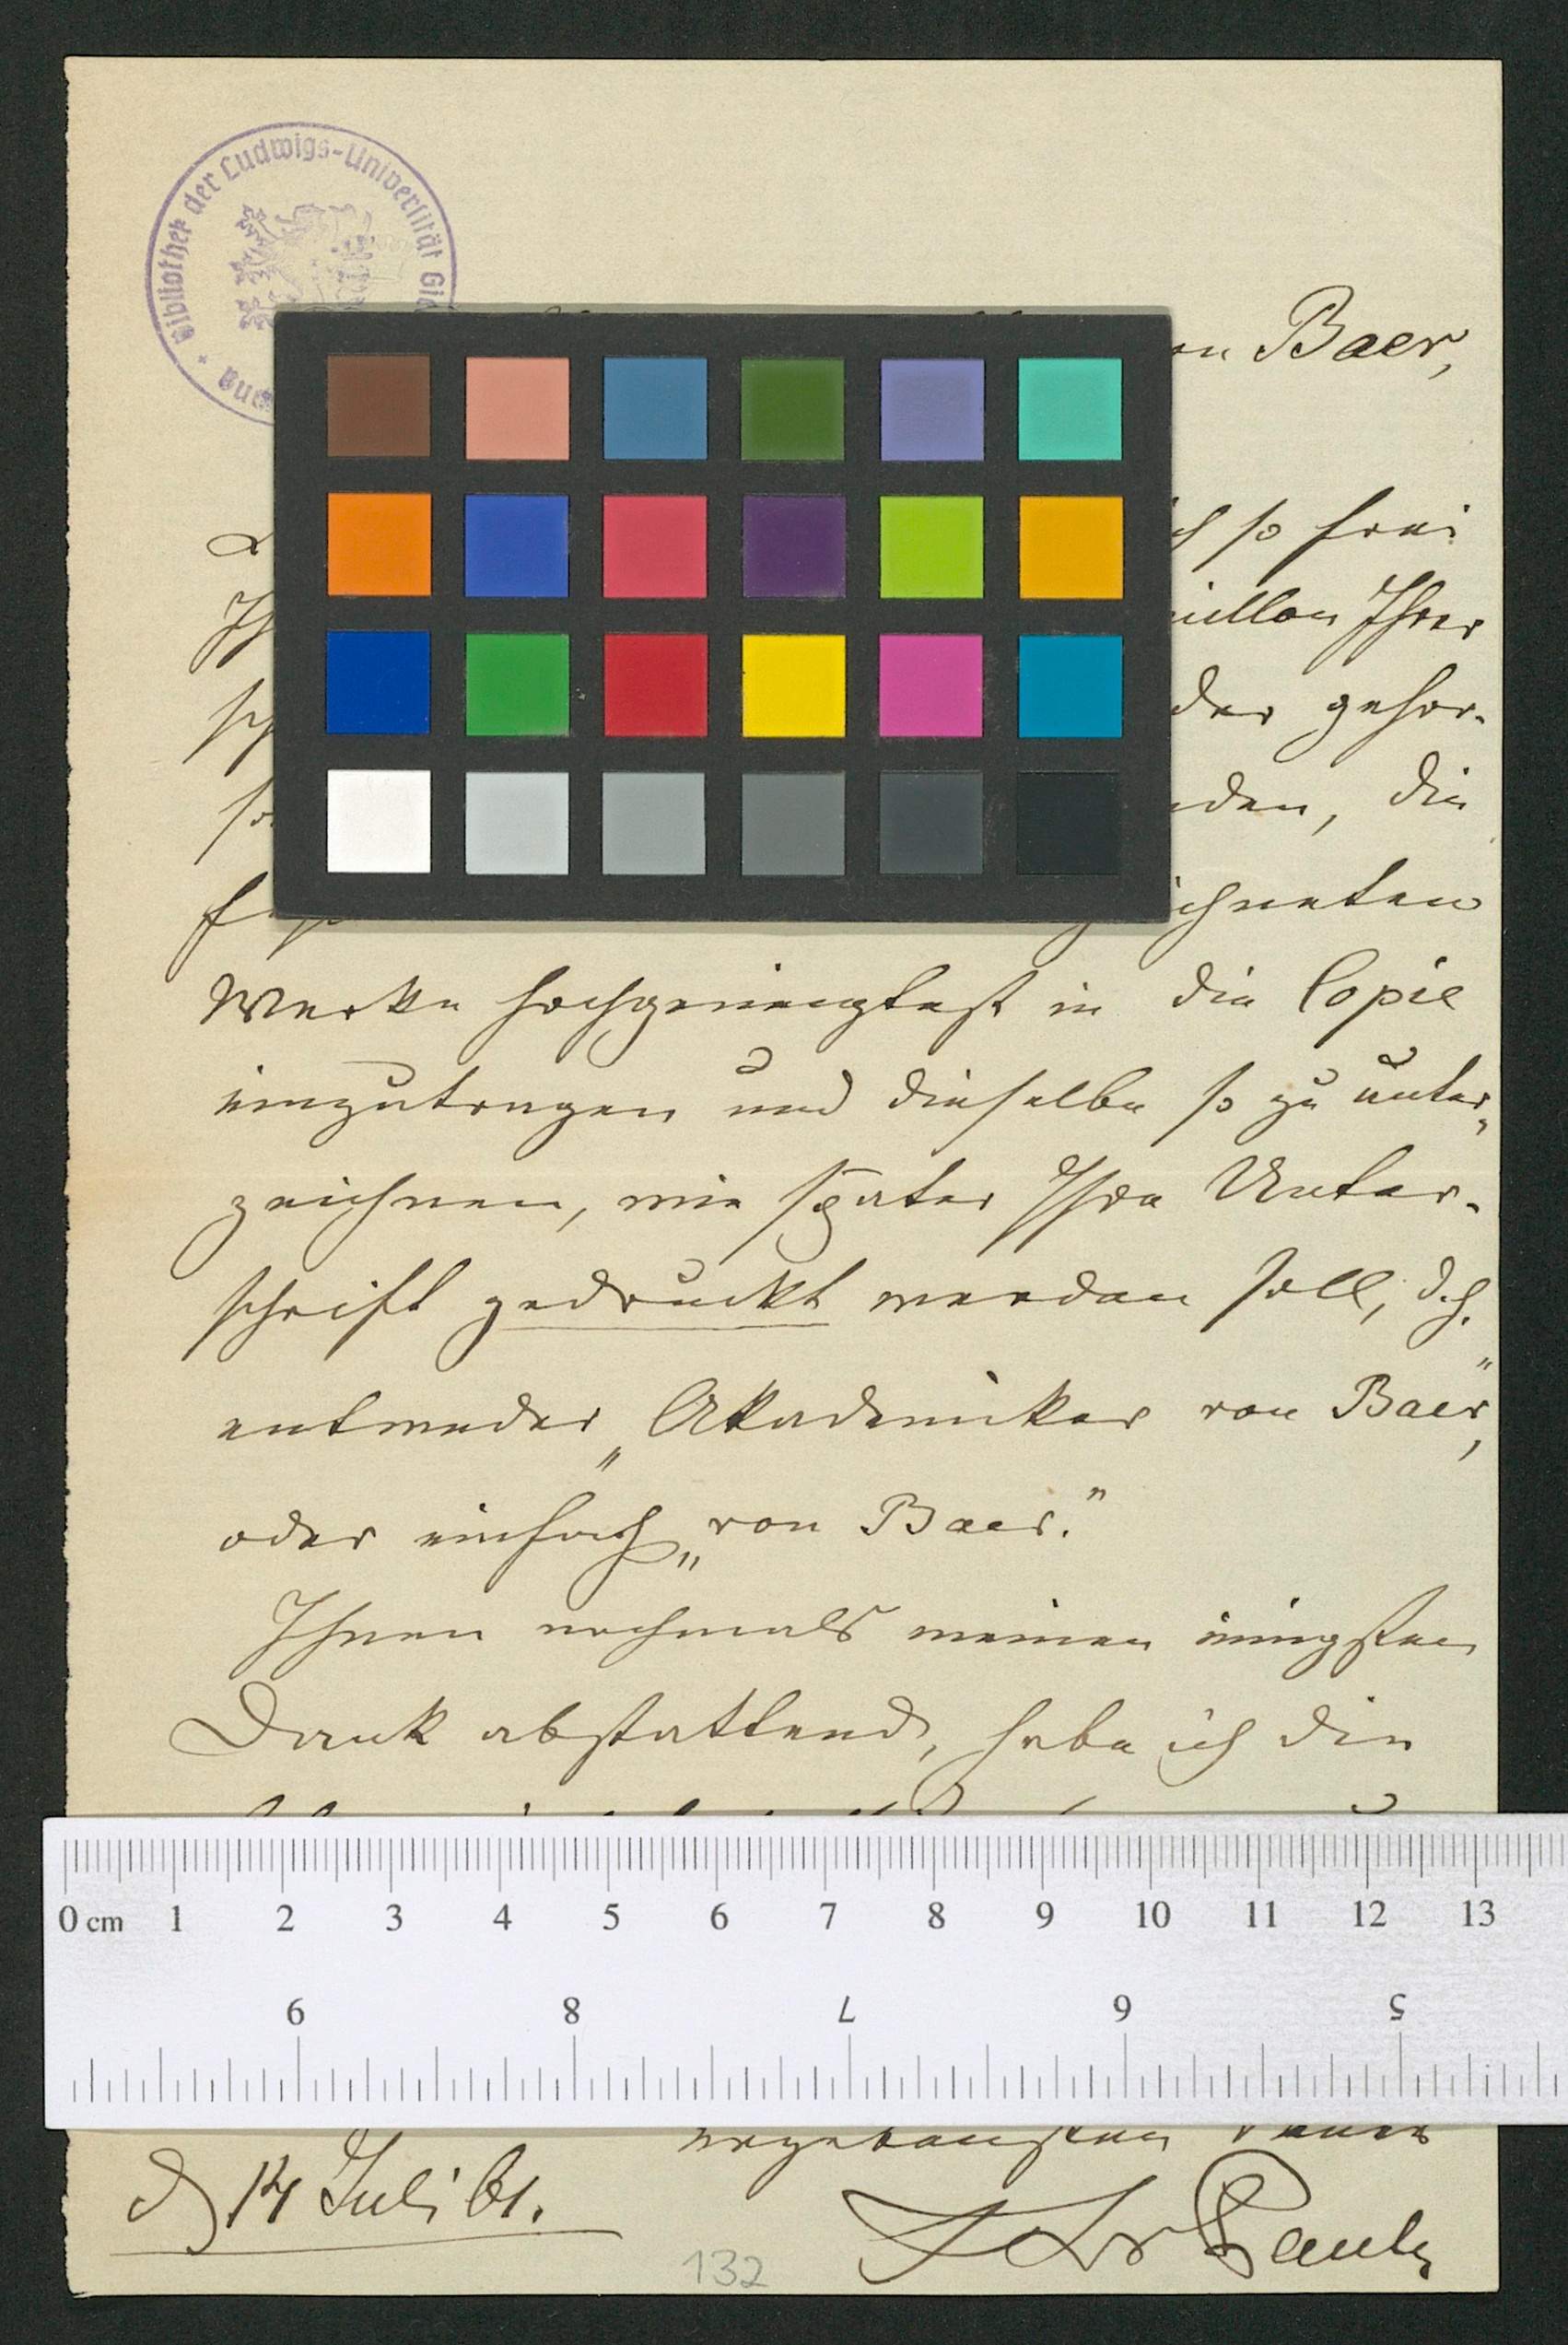 Bibliothek der Ludwigs-Universität
von Baer,
ich so frei
Ihrer
der gehor-
die
Werke hochgeneigtest in die Copie
einzutragen und dieselbe so zu unter-
zeichnen, wie später Ihre Unter-
schrift gedruckt werden soll, d.h.
entweder „Akademiker von Baer",
oder einfach „von Baer."
Ihnen nochmals meinen innigsten
Dank abstattend, habe ich die
0 cm 1 2 3 4 5 6 7 8 9 10 11 12 13
9 8 7 6 5
ergebensten
d 14 Juli 61.
132